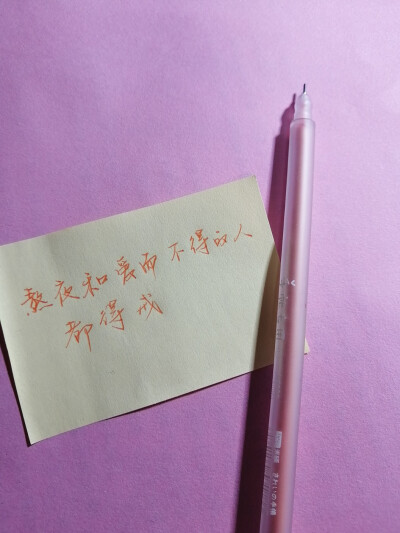 熬夜和爱而不得的人
都得戒